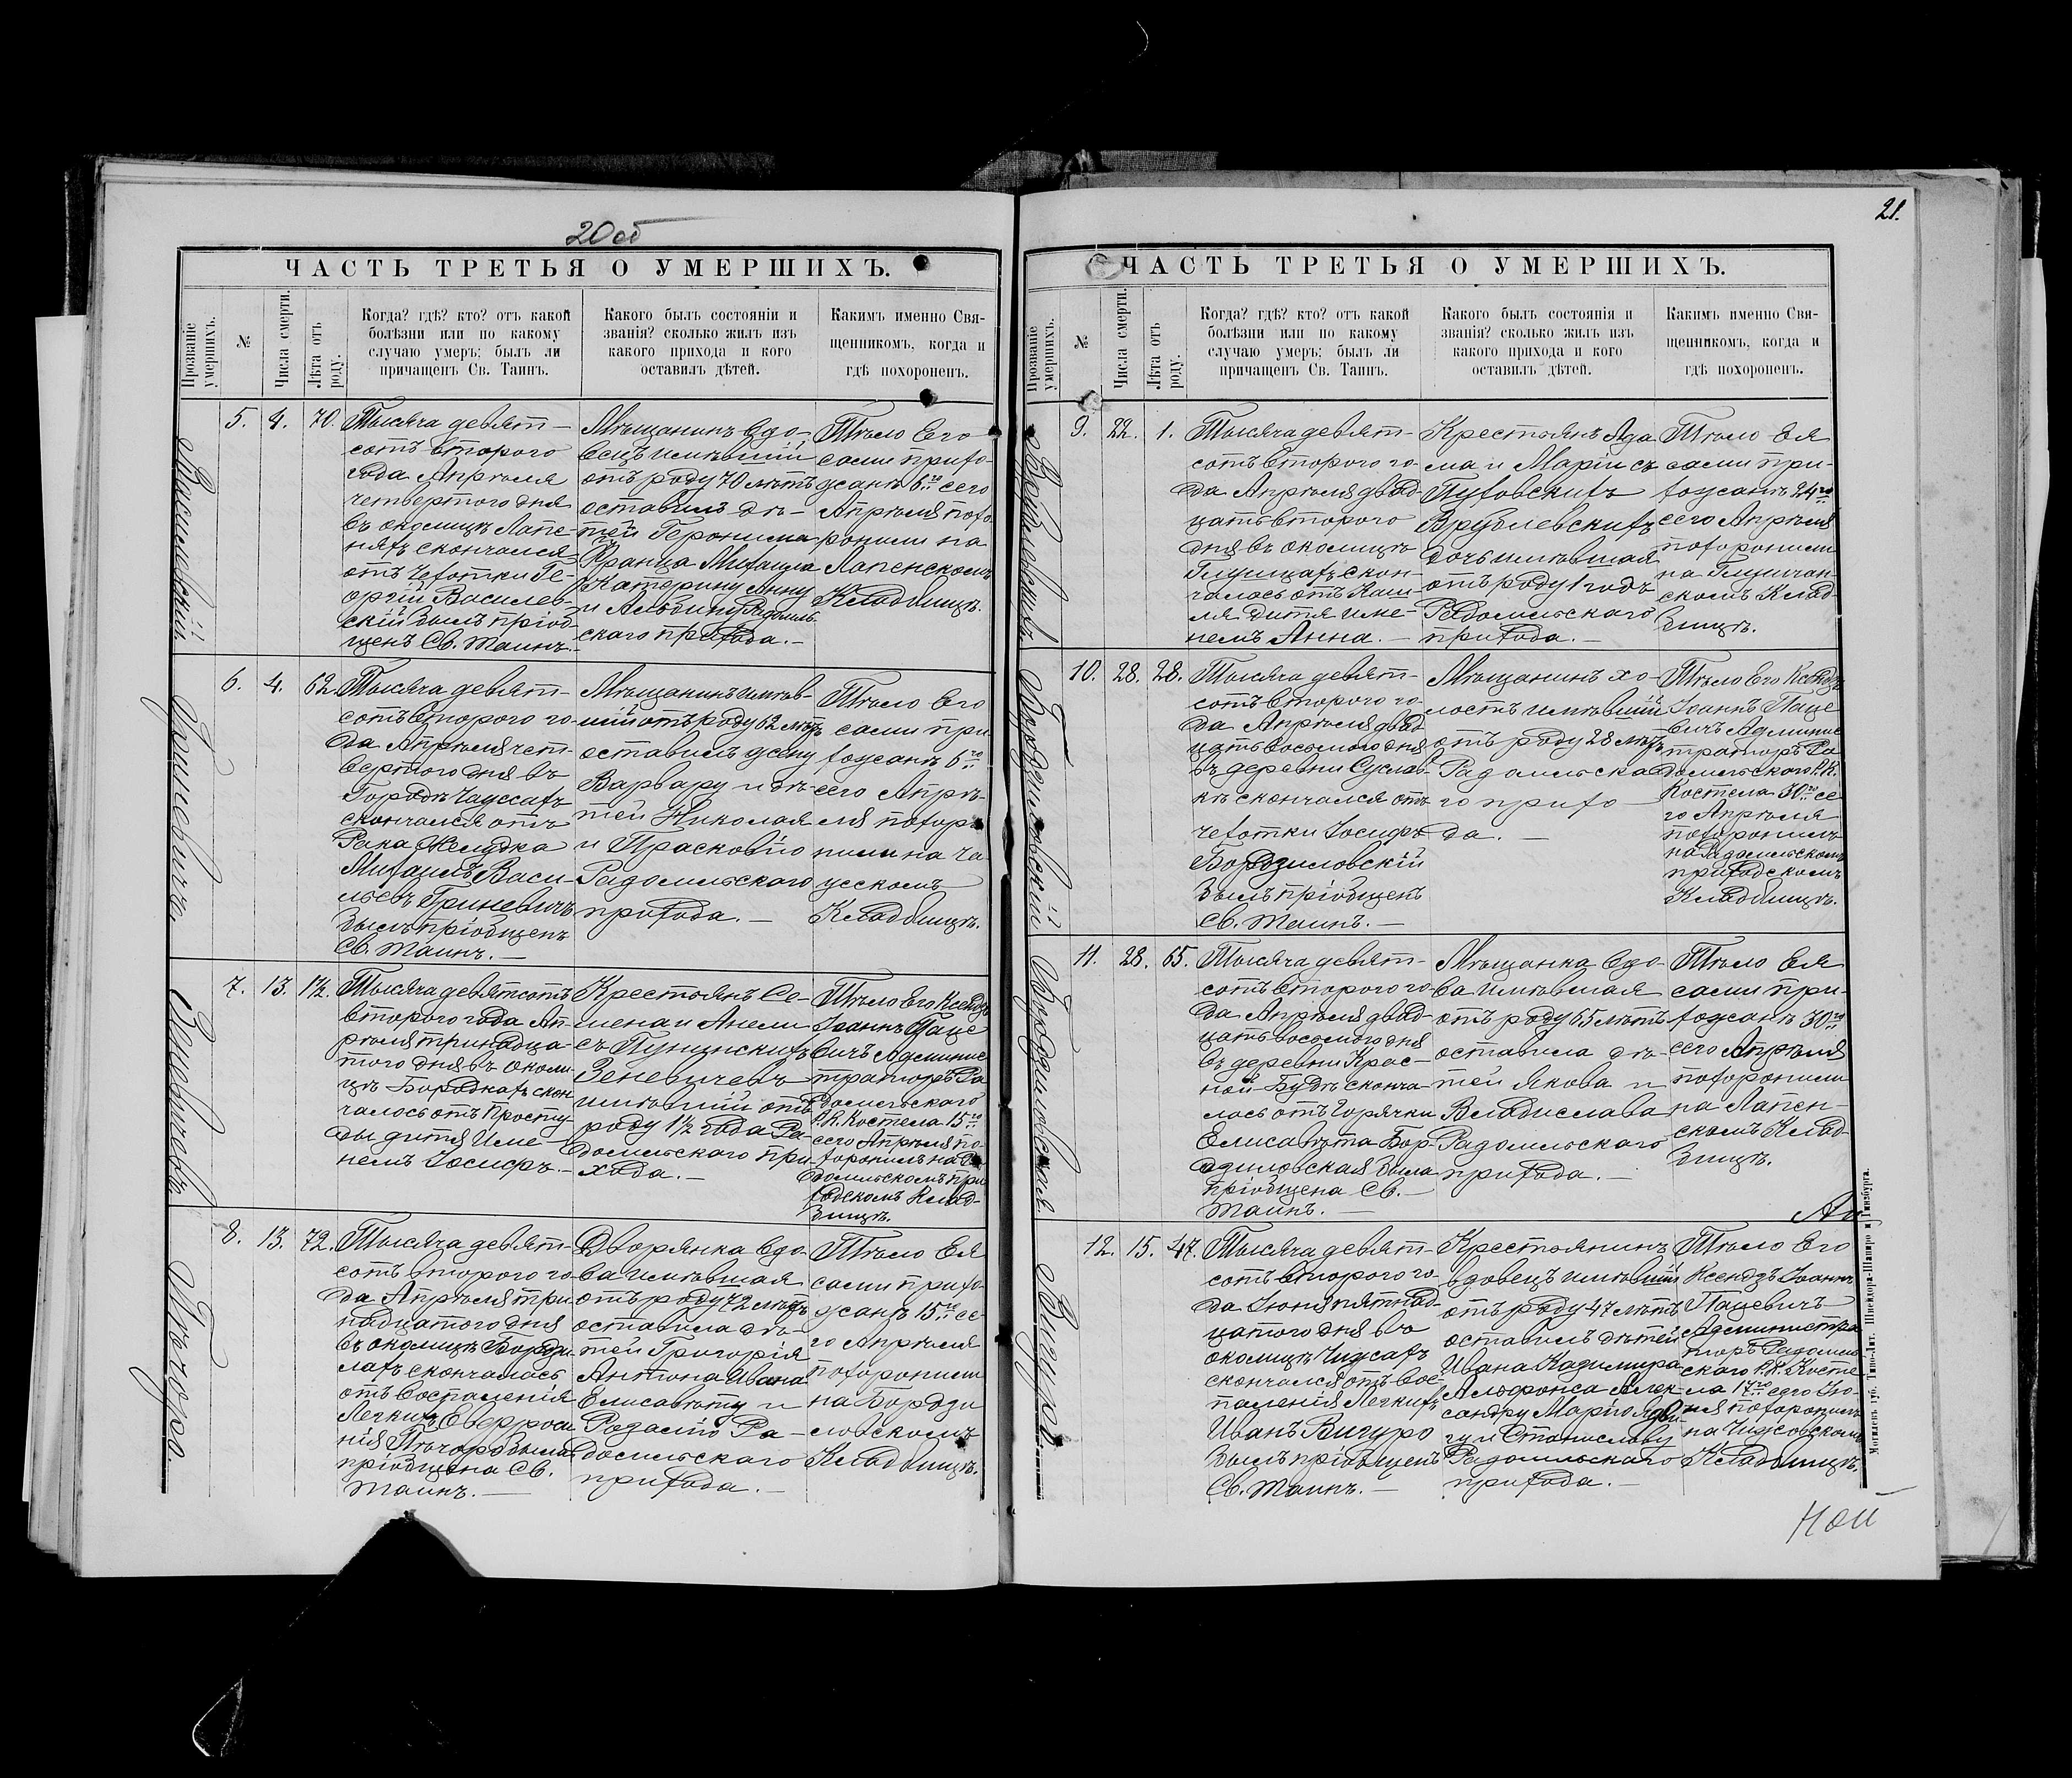 20 об
ЧАСТЬ ТРЕТЬЯ О УМЕРШИХЪ.
Прозваніе умершихъ.
№
Числа смерти.
Лѣта отъ роду.
Когда? гдѣ? кто? отъ какой
болѣзни или по какому
случаю умеръ; былъ ли
причащенъ Св. Таинъ.
Какого былъ состоянія и
званія? сколько жилъ изъ
какого прихода и кого
оставилъ дѣтей.
Какимъ именно Свя-
щенникомъ, когда и
гдѣ похороненъ.
Василевскій
5.
4.
70.
Тысяча девят-
сотъ второго
года Апрѣля
четвертого дня
въ околицѣ Лапе-
няхъ скончался
отъ Чехотки Ге-
оргій Василев-
скій былъ пріоб-
щенъ Св. Таинъ.
Мѣщанинъ вдо-
вецъ имѣвшій
отъ роду 70 лѣтъ
оставилъ дѣ-
тей Геронима
Франца Михаила
Катерину Анну
и Альбину Радомль-
скаго прихода. —
Тѣло Его
сами прихо-
жанѣ 6го сего
Апрѣля похо-
ронили на
Лапенскомъ
Кладбищѣ.
Гриневичъ
6.
4.
62.
Тысяча девят-
сотъ второго го-
да Апрѣля чет-
вертого дня въ
Городѣ Чауссахъ
скончался отъ
Рака Желудка
Михаилъ Васи-
льевъ Гриневичъ
былъ пріобщенъ
Св. Таинъ. —
Мѣщанинъ имѣв-
шій отъ роду 62 лѣтъ
оставилъ жену
Варвару и дѣ-
тей Николая
и Прасковію
Радомльскаго
прихода. —
Тѣло Его
сами при
хожанѣ 6го
сего Апрѣ-
ля похор
нили на Ча
усскомъ
Кладбищѣ.
Зеневичевъ
7.
13.
1½.
Тысяча девятсотъ
второго года Ап-
рѣля тринадца-
того дня въ околи
цѣ Бородкахъ скон
чалось отъ Просту
ды дитя Име-
немъ Іосифъ. —
Крестьянъ Се-
мена и Анели
съ Пунинскихъ
Зеневичевъ
имѣвшій отъ
роду 1½ года Ра-
домльскаго при-
хода. —
Тѣло Его Ксендзъ
Іоаннъ Паце
вичъ Админис
траторъ Ра
домльскаго
Р. К. Костела 15го
сего Апрѣля по-
хоронилъ на Ра
домльскомъ при
ходскомъ Клад-
бищѣ.
8.
13.
72.
Тысяча девят-
сотъ второго го
да Апрѣля три
надцатого дня
въ околицѣ Бордзи
лахъ скончалась
отъ воспаленія
Легкихъ Евфроси
нія была
пріобщена Св.
Таинъ. —
Дворянка вдо-
ва имѣвшая
отъ роду 72 лѣтъ
оставила дѣ-
тей Григорія
Антона Ивана
Елисавету и
Розалію Ра-
домльскаго
прихода. —
Тѣло Ея
сами прихо-
жанѣ 15го се-
го Апрѣля
похоронили
на Бордзи
ловскомъ
Кладбищѣ.
21.
ЧАСТЬ ТРЕТЬЯ О УМЕРШИХЪ.
Прозваніе умершихъ.
№
Числа смерти.
Лѣта отъ роду.
Когда? гдѣ? кто? отъ какой
болѣзни или по какому
случаю умеръ; былъ ли
причащенъ Св. Таинъ.
Какого былъ состоянія и
званія? сколько жилъ изъ
какого прихода и кого
оставилъ дѣтей.
Какимъ именно Свя-
щенникомъ, когда и
гдѣ похороненъ.
Врублевскихъ
9.
22.
1.
Тысяча девят-
сотъ второго го-
да Апрѣля двад-
цать второго
дня въ околицѣ
Глущахъ скон-
чалась отъ Каш-
ля дитя име-
немъ Анна. —
Крестьянъ Ада
ма и Маріи съ
Пуховскихъ
Врублевскихъ
дочь имѣвшая
отъ роду 1 годъ
Радомльскаго
прихода. —
Тѣло Ея
сами при-
хожанѣ 24го
сего Апрѣля
похоронили
на Глущан-
скомъ Клад-
бищѣ.
Бордзиловскій
10.
28.
28.
Тысяча девят-
сотъ второго го-
да Апрѣля двад-
цать восьмого дня
въ деревни Суслов-
кѣ скончался отъ
чехотки Іосифъ
Бордзиловскій
былъ пріобщенъ
Св. Таинъ. —
Мѣщанинъ хо-
лостъ имѣвшій
отъ роду 28 лѣтъ
Радомльска
го прихо-
да. —
Тѣло Его Ксендзъ
Іоаннъ Паце
вичъ Админис
траторъ Ра
домльского Р. К.
Костела 30го се
го Апрѣля
похоронилъ
на Радомльскомъ
приходскомъ
Кладбищѣ.
Бордзиловская
11.
28.
65.
Тысяча девят-
сотъ второго го-
да Апрѣля двад-
цать восьмого дня
въ деревни Крас-
ной-Будѣ сконча-
лась отъ горячки
Елисавета Бор-
дзиловская была
пріобщена Св.
Таинъ. —
Мѣщанка вдо-
ва имѣвшая
отъ роду 65 лѣтъ
оставила дѣ-
тей Якова и
Владислава
Радомльскаго
прихода. —
Тѣло Ея
сами при-
хожанѣ 30го
сего Апрѣля
похоронили
на Лапен-
скомъ Клад-
бищѣ.
Вигуро
12.
15.
47.
Тысяча девят-
сотъ второго го-
да Іюня пятнад-
цатого дня въ
околицѣ Чижахъ
скончался отъ вос-
паленія Легкихъ
Иванъ Вигуро
былъ пріобщенъ
Св. Таинъ. —
Крестьянинъ
вдовецъ имѣвшій
отъ роду 47 лѣтъ
оставилъ дѣтей
Ивана Казимира
Альфонса Алек-
сандру Марію Ядви-
гу и Станиславу
Радомльскаго
прихода. —
Тѣло Его
Ксендзъ Іоаннъ
Пацевичъ
Администра
торъ Радомль
скаго Р. К. Косте
ла 17го сего Ію-
ня похоронилъ
на Чижовскомъ
Кладбищѣ.
Могилевъ губ. Типо-Лит. Шнейдора-Шапиро и Гинзбурга.
ной